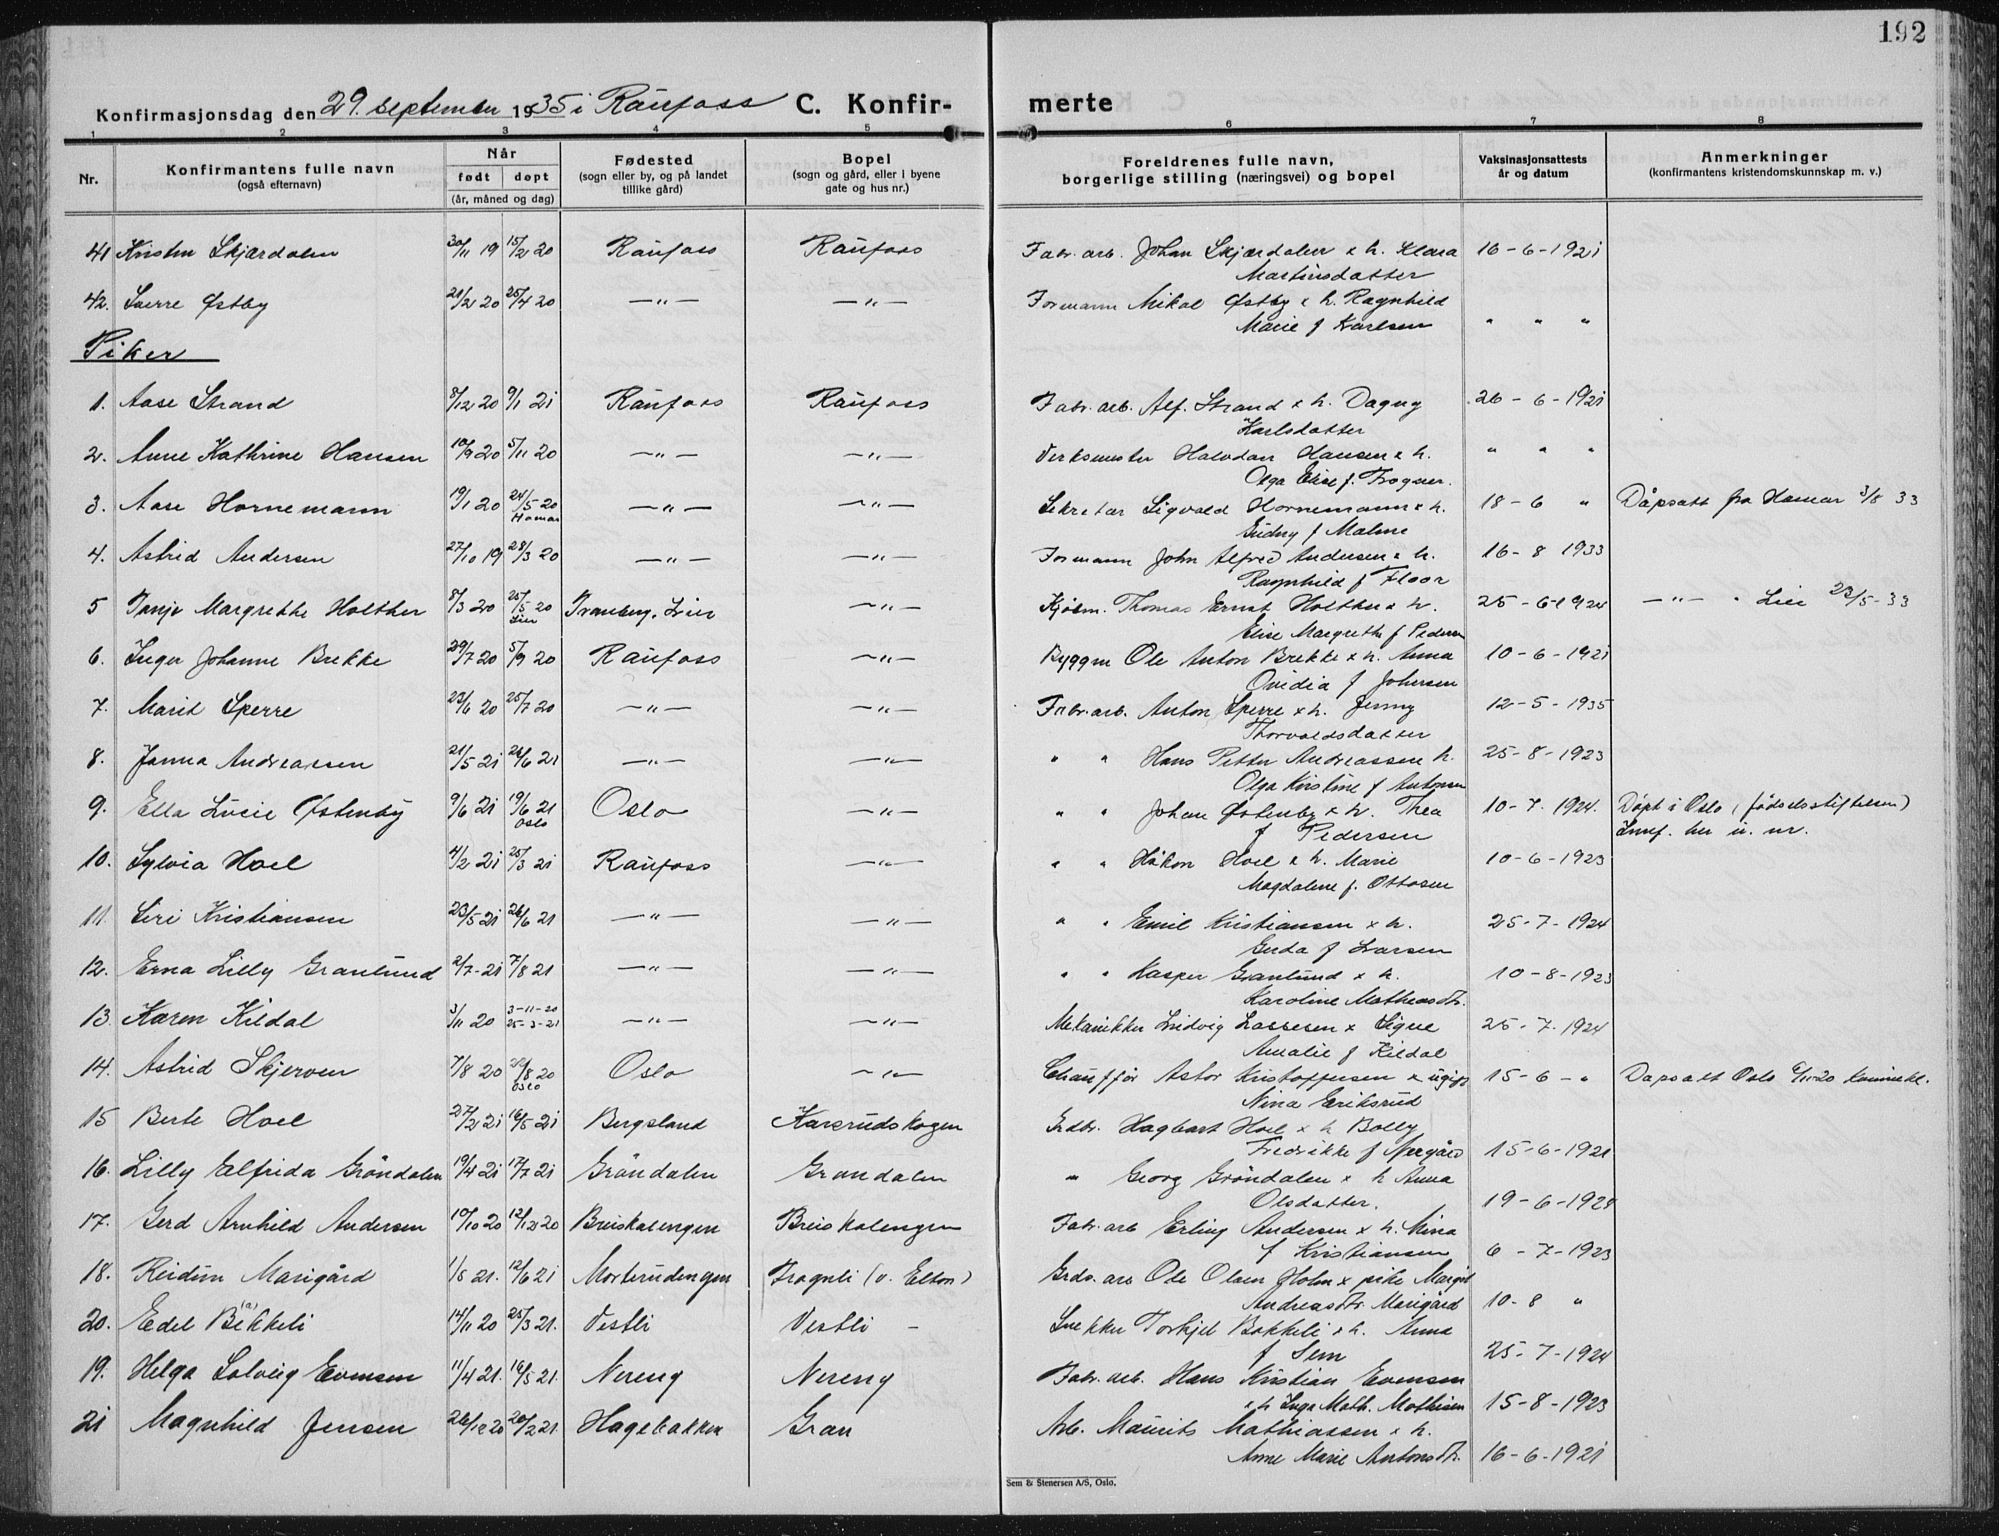 192
Konfirmasjonsdag den 29. september 1935 i Raufoss C. Konfirmerte
1 2 3 4 5 6 7 8
Nr. Konfirmantens fulle navn (også efternavn) Når født døpt (år, måned og dag) Fødested (sogn eller by, og på landet tillike gård) Bopel (sogn og gård, eller i byene gate og hus nr.) Foreldrenes fulle navn, borgerlige stilling (næringsvei) og bopel Vaksinasjonsattests år og datum Anmerkninger (konfirmantens kristendomskunnskap m. v.)
41 Kristen Skjærdalen 30/11 19 15/2 20 Raufoss Raufoss Fabr. arb. Johan Skjærdalen x h. Klara 16-6-1921
Martinsdatter
42. Sverre Østby 21/2 20 25/4 20 —"— —"— Formann Mikal Østby x h. Ragnhild
Marie f Karlsen " " "
Piker
1. Aase Strand 3/12 20 9/1 21 Raufoss Raufoss Fabr. arb. Alf. Strand x h. Dagny 26-6-1921
Karlsdatter
2. Anne Kathrine Hansen 10/9 20 5/11 20 —"— —"— Verksmester Halvdan Hansen x h. " " "
Olga Elise f. Trogner.
3. Aase Hornemann 19/1 20 24/5 20 Hamar —"— —"— Sekretær Sigvald Hornemann x h. 18-6 " Dåpsatt fra Hamar 3/8 33
Gudny f Malme
4. Astrid Andersen 27/10 19 28/3 20 —"— —"— Formann John Alfred Andersen x h. 16-8 1933
Ragnhild f Floor
5 Tanja Margrethe Holther 8/3 20 25/5 20 Lier Tranberg, Lier —"— Kjøbm. Thomas Ernst Holther x h. 25-6-1924 —"— " Lier 23/5-33
Elise Margrethe f Pedersen
6. Inger Johanne Brekke 29/7 20 5/9 20 Raufoss —"— Byggm Ole Anton Brekke x h. Anna 10-6-1921
Ovidia f Johersen
7. Marit Sperre 23/6 20 25/7 20 —"— —"— Fabr. arb. Anton Sperre x h. Jenny 12-5-1935
Thorvaldsdatter
8. Janna Andreassen 21/5 21 26/6 21 —"— —"— " " Hans Petter Andreassen h. 25-8-1923
Olga Kristine f Antonsen
9. Ella Lucie Østenby 9/6 21 19/6 21 Oslo Oslo —"— " " Johan Østenby x h. Thea 10-7. 1924. Døpt i Oslo (fødselsstiftelsen)
f Pedersen Innf. her u. nr.
10. Sylvia Hoel 4/2 21 25/3 21 Raufoss —"— " " Håkon Hoel x h. Marie 10-6-1923
Magdalene f. Ottosen
11. Siri Kristiansen 23/5 21 26/6 21 —"— —"— " " Emil Kristiansen x h. 25-7-1924
Gerda f Larsen
12. Erna Lilly Granlund 2/7-21 7/8 21 —"— —"— " " Kasper Granlund x h. 10-8-1923
Karoline Matheasdtr.
13. Karen Kildal 3/11 20 3-11-20 25-3-21 —"— —"— Mekanikker Ludvig Lassesen x Signe 25-7-1924
Amalie f Kildal
14. Astrid Skjerven 7/8 20 /8 20 Oslo Oslo —"— Chauffør Astor Kristoffersen x ugift 15-6-" Dåpsatt Oslo
Nina Eriksrud
15 Berte Hoel 27/2 21 16/5 21 Bergsland Kareruds kogen Grdbr. Hagbart Hoel x h Bolly
Fredrikke f Nergård 15-6-1921
16. Lilly Elfrida Grøndalen 19/4 21 17/7 21 Grøndalen Grøndalen " Georg Grøndalen x h Anna
Olsdatter. 19-6-1924
17. Gerd Arnhild Andersen 10/10 20 12/12 20 Breiskalengen Breiskalengen Fabr. arb Erling Andersen x h. Mina
f Kristiansen 6-7-1923
18. Reidun Marigård 1/5 21. 12/6 21 Morterudengen Fragnli (v. Elton) Grds. arb Ole Olsen Holm x pike Margit
Andreasdtr. Marigård 10-8 "
20. Edel Bekkeli (a) 14/11 20 25/3 21. Vestli Vestli - Snekker Torkjel Bakkeli x h. Anna
f Sem 25-7-1924
19. Helga Solveig Evensen 11/4 21. 16/5 21. Nereng Nereng Fabr. arb. Hans Kristian Evensen
x h Inga Math. Mathisen 15-8-1923
21 Magnhild Jensen 26/12 20 20/2 21. Hagebakken Gran Arb. Maurits Mathiassen x h.
Anne Marie Antonsdtr. 16-6-1921
Sem & Stenersen A/S, Oslo.